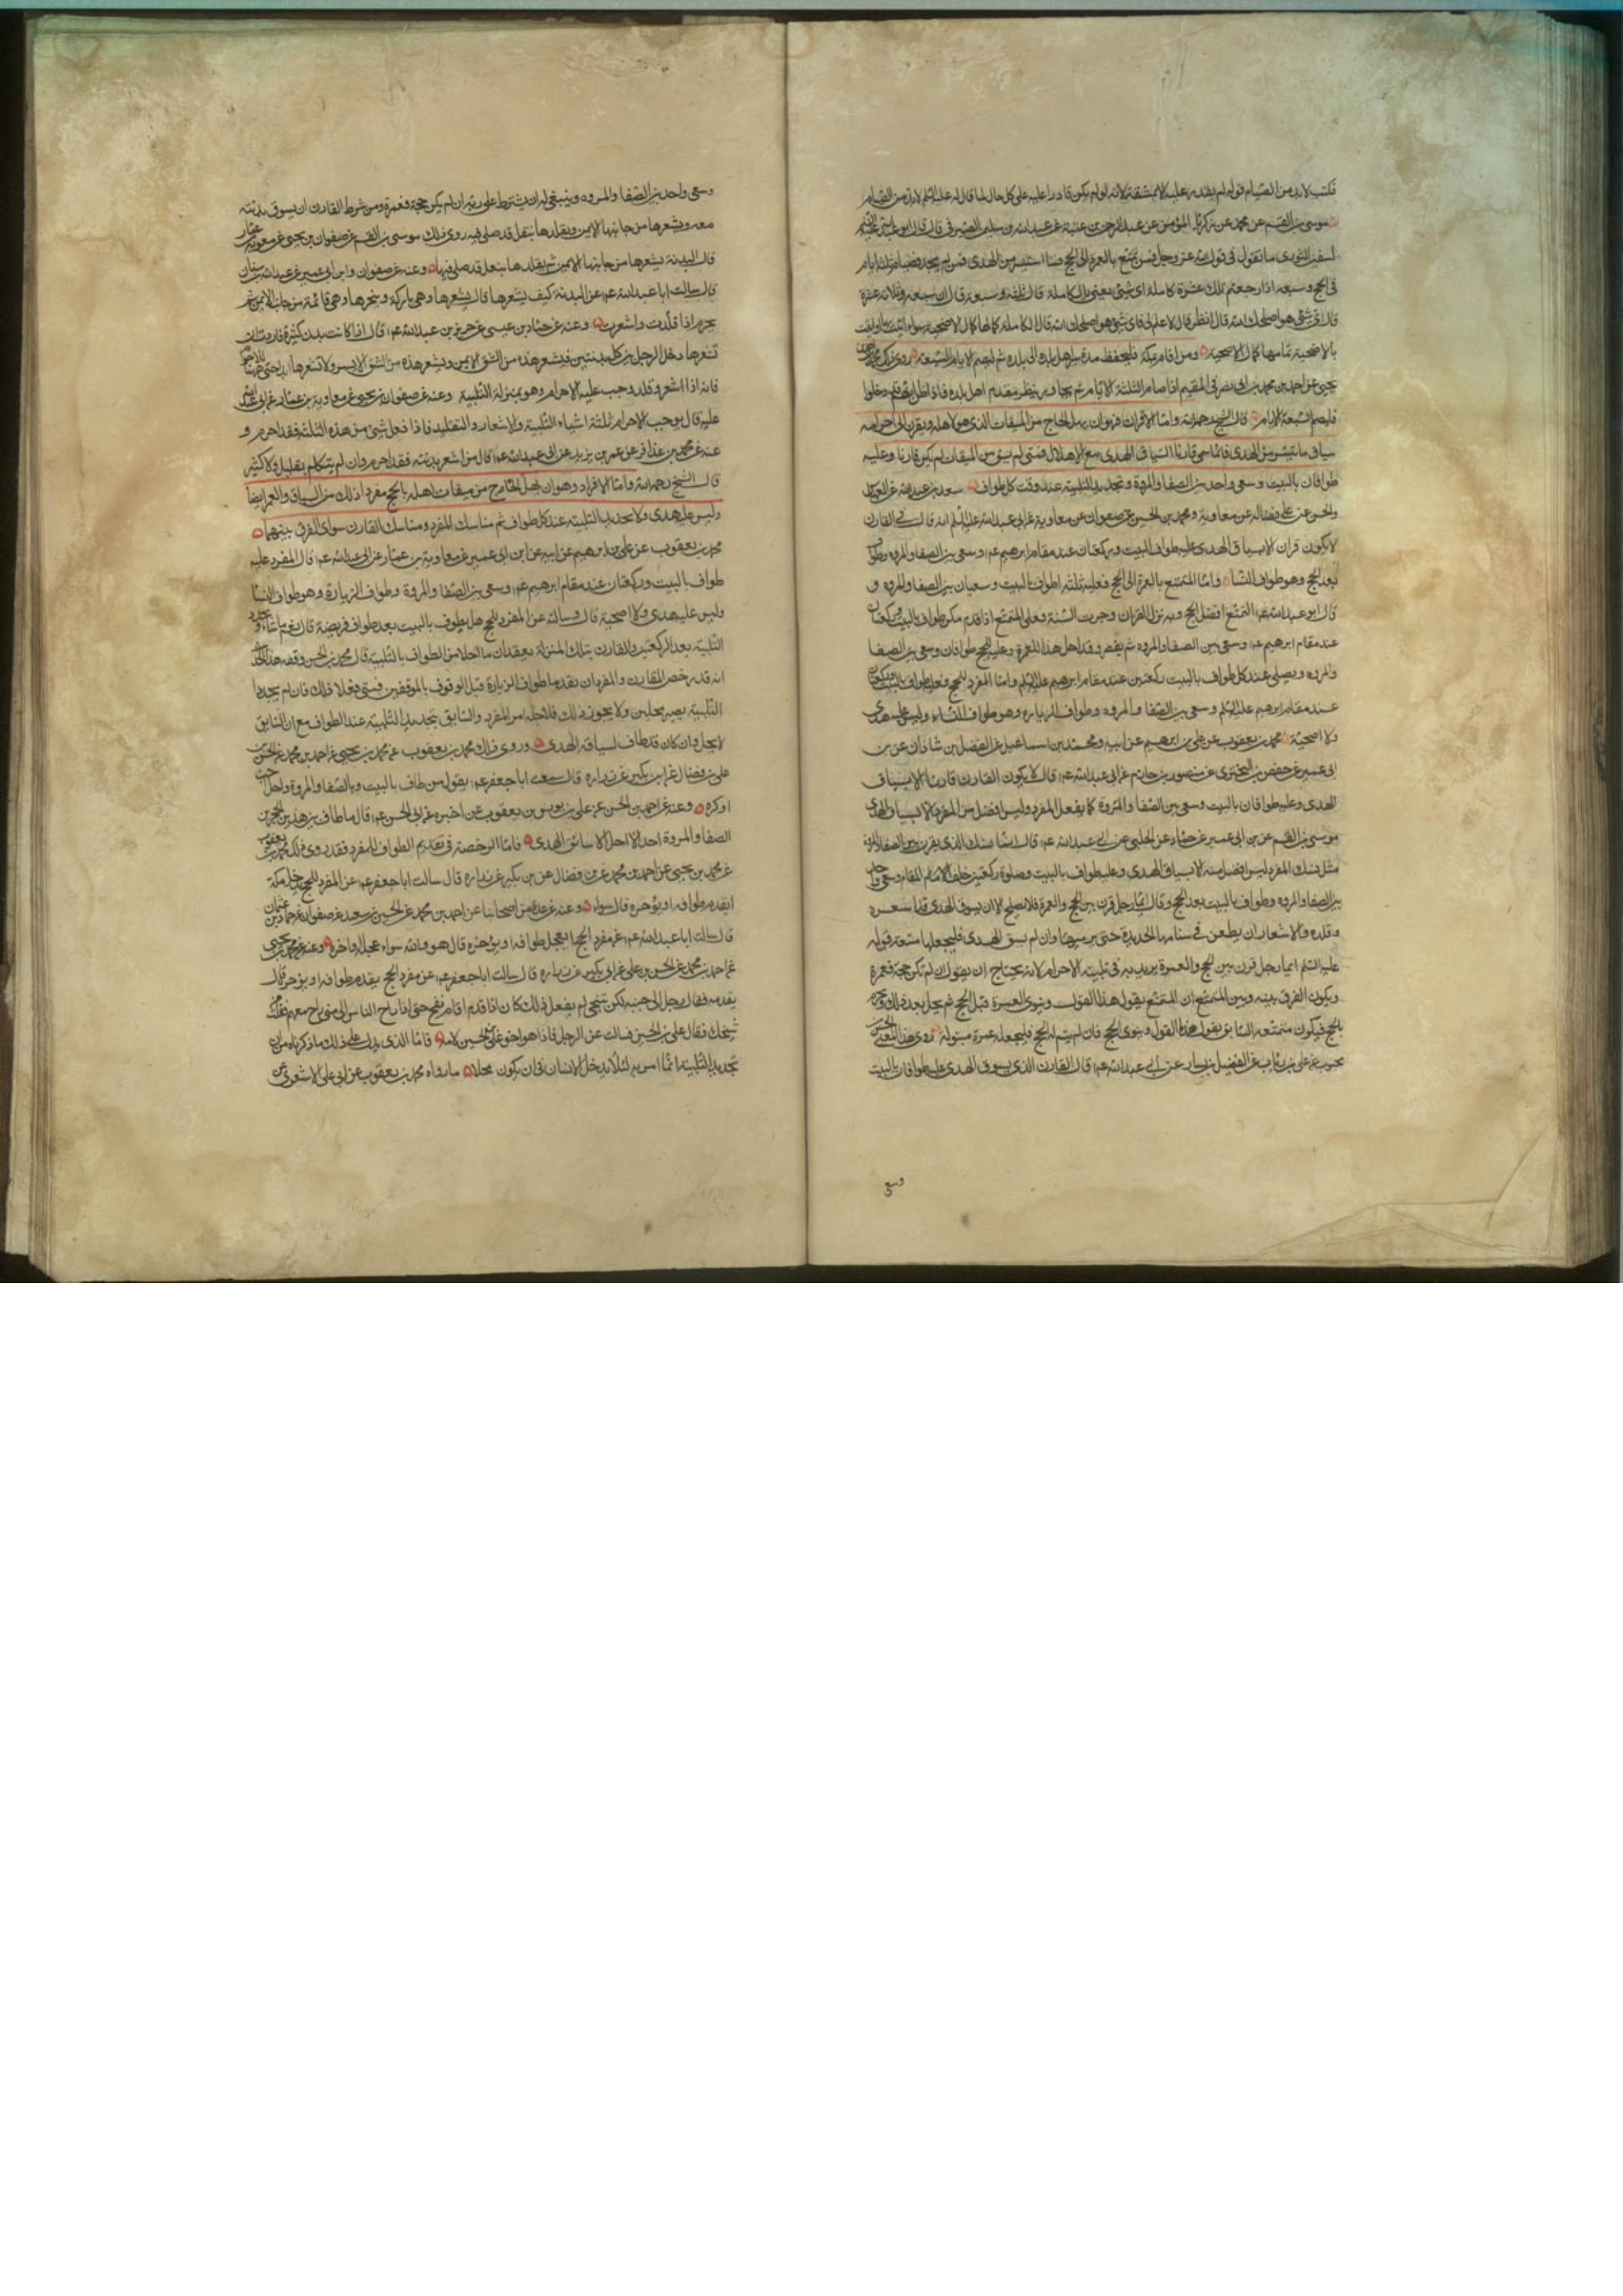 فكتب لابد من الصيام قوله لم يقدر عليه الا بمشقة لانه لو لم يكن قادرا عليه على كل حال لما قال له عليه السلم لابد من الصيام
موسى بن القسم عن محمد عن زكريا المؤمن عن عبد الرحمن بن عتبة عن عبد الله بن سليمن الصيرفي قال قال ابو عبد الله عليه السلم
لسفين الثوري ما تقول في قول الله عز وجل فمن تمتع بالعمرة الى الحج فما استيسر من الهدى فمن لم يجد فصيام ثلثة ايام
في الحج وسبعة اذا رجعتم تلك عشرة كاملة اى شئ يعنى بالكاملة قال ثلثة وسبعة قال ان سبعة وثلاثة عشرة
قال فاى شئ هو اصلحك الله قال انظر قال لا علم لى فاى شئ هو اصلحك الله قال الكاملة كمالها كمال الاضحية سواء اتيت بها او لم تات
بالاضحية تمامها كمال الاضحية ومن اقام بمكة فليحفظ مدة مسير اهل بلده الى بلده ثم ليصم الايام السبعة روى ذلك محمد بن
يحيى عن احمد بن محمد بن ابى نصر في المقيم اذا صام الثلثة الايام ثم يجاور ينظر مقدم اهل بلده فاذا ظن انهم قد دخلوا
فليصم السبعة الايام قال الشيخ رحمه الله واما الاقران فهو ان يهل الحاج من الميقات الذى هو لاهله ويقرن الى احرامه
سياق ما تيسر من الهدى فانما سمى قارنا لسياق الهدى مع الاهلال فمتى لم يسق من الميقات لم يكن قارنا وعليه
طوافان بالبيت وسعى واحد بين الصفا والمروة وتجديد التلبية عند وقت كل طواف سعد بن عبد الله عن العباس
والحسن عن على عن فضالة عن معاوية ومحمد بن الحسين عن صفوان عن معاوية عن ابى عبد الله عليه السلم انه قال في القارن
لا يكون قران الا بسياق الهدى وعليه طواف البيت وركعتان عند مقام ابرهيم عم وسعى بين الصفا والمروه وطواف
بعد الحج وهو طواف النسا واما المتمتع بالعمرة الى الحج فعليه ثلثة اطواف بالبيت وسعيان بين الصفا والمروه و
قال ابو عبد الله عم التمتع افضل الحج وبه نزل القران وجرت السنة وعلى المتمتع اذا قدم مكة طواف بالبيت وركعتان
عند مقام ابرهيم عم وسعى بين الصفا والمروه ثم يقصر وقد احل هذا للعمرة وعليه للحج طوافان وسعى بين الصفا
والمروه ويصلى عند كل طواف بالبيت ركعتين عند مقام ابرهيم عليه السلم واما المفرد للحج فعليه طواف بالبيت وركعتان
عند مقام ابرهيم عليه السلم وسعى بين الصفا والمروه وطواف الزياره وهو طواف النساء وليس عليه هدى
ولا اضحية محمد بن يعقوب عن على بن ابرهيم عن ابيه ومحمد بن اسماعيل عن الفضل بن شاذان عن بن
ابى عمير عن حفص بن البخترى عن منصور بن حازم عن ابى عبد الله عم قال لا يكون القارن قارنا الا بسياق
الهدى وعليه طوافان بالبيت وسعى بين الصفا والمروة كما يفعل المفرد وليس افضل من المفرد الا بسياق الهدى
موسى بن القسم عن بن ابى عمير عن حماد عن الحلبى عن ابى عبد الله عم قال انما نسك الذى يقرن بين الصفا والمروة
مثل نسك المفرد ليس افضل منه الا بسياق الهدى وعليه طواف بالبيت وصلوة ركعتين خلف المقام وسعى واحد
بين الصفا والمروه وطواف بالبيت بعد الحج وقال ايما رجل قرن بين الحج والعمرة فلا يصلح الا ان يسوق الهدى قد اشعره
وقلده والاشعار ان يطعن في سنامها بالحديدة حتى يدميها وان لم يسق الهدى فليجعلها متعة قوله
عليه السلم ايما رجل قرن بين الحج والعمرة يريد به في تلبية الاحرام لانه يحتاج ان يقول ان لم تكن حجة فعمرة
ويكون الفرق بينه وبين المتمتع ان المتمتع يقول هذا القول وينوى العمرة قبل الحج ثم يحل بعد ذلك ويحرم
بالحج فيكون متمتعه السائق يقول هذا القول وينوى الحج فان لم يتم له الحج فليجعله عمرة مبتولة روى هذا المعنى الحسن بن
محبوب عن على بن رئاب عن الفضيل بن يسار عن ابى عبد الله عم قال القارن الذى يسوق الهدى عليه طوافان بالبيت
وسعى
وسعى واحد بين الصفا والمروه وينبغى له ان يشترط على ربه ان لم يكن حجة فعمرة ومن شرط القارن ان يسوق بدنة
معه ويشعرها من جانبها الايمن ويقلدها بنعل قد صلى فيه روى ذلك موسى بن القسم عن صفوان بن يحيى عن معوية بن عمار
قال البدنة يشعرها من جانبها الايمن ثم يقلدها بنعل قد صلى فيها وعنه عن صفوان وابن ابى عمير عن عبد الله بن سنان
قال سالت ابا عبد الله عم عن البدنة كيف يشعرها قال يشعرها وهى باركة وينحرها وهى قائمة من جانبها الايمن ثم
يحرم اذا قلدت واشعرت وعنه عن حماد بن عيسى عن حريز بن عبد الله عم قال اذا كانت بدن كثيرة فاردت ان
تشعرها دخل الرجل بين كل بدنتين فيشعر هذه من الشق الايمن ويشعر هذه من الشق الايسر ولا تشعرها ابدا حتى يتهيا للاحرام
فانه اذا اشعر وقلد وجب عليه الاحرام وهو بمنزلة التلبية وعنه عن صفوان بن يحيى عن معاوية بن عمار عن ابى عبد الله
عليه قال يوجب الاحرام ثلثة اشياء التلبية والاشعار والتقليد فاذا فعل شئ من هذه الثلثة فقد احرم و
عنه عن محمد بن عذافر عن عمر بن يزيد عن ابى عبد الله عم قال من اشعر بدنته فقد احرم وان لم يتكلم بقليل ولا كثير
قال الشيخ رحمه الله واما الافراد وهو ان يهل الحاج من ميقات اهله بالحج مفردا ذلك من السياق والعمرة ايضا
وليس عليه هدى ولا تجديد التلبية عند كل طواف ثم مناسك المفرد ومناسك القارن سواء لا فرق بينهما
محمد بن يعقوب عن على بن ابرهيم عن ابيه عن ابن ابى عمير عن معاوية بن عمار عن ابى عبد الله عم قال المفرد عليه
طواف بالبيت وركعتان عند مقام ابرهيم عم وسعى بين الصفا والمروة وطواف الزيارة وهو طواف النسا
وليس عليه هدى ولا اضحية قال وسالته عن المفرد للحج هل يطوف بالبيت بعد طواف فريضة قال نعم ما شاء ويجدد
التلبية بعد الركعتين والقارن بتلك المنزلة يعقدان ما احلا من الطواف بالتلبية قال محمد بن الحسن وفقه هذا الحديث
انه قد رخص للقارن والمفرد ان يقدما طواف الزيارة قبل الوقوف بالموقفين فمتى فعلا ذلك فان لم يجددا
التلبية يصيرا محلين ولا يجوز ذلك فلاجله امر المفرد والسائق بتجديد التلبية عند الطواف مع ان السائق
لا يحل وان كان قد طاف لسياقه الهدى وروى ذلك محمد بن يعقوب عن محمد بن يحيى عن احمد بن محمد عن الحسن بن
على بن فضال عن ابن بكير عن زراره قال سمعت ابا جعفر عم يقول من طاف بالبيت وبالصفا والمروة احل احب
او كره وعنه عن احمد بن الحسن عن على بن يونس بن يعقوب عمن اخبره عن ابى الحسن عم قال ما طاف بين هذين الحجرين
الصفا والمروة احد الا احل الا سائق الهدى فاما الرخصة في تقديم الطواف للمفرد فقد روى ذلك محمد بن يعقوب
عن محمد بن يحيى عن احمد بن محمد عن بن فضال عن بن بكير عن زراره قال سالت ابا جعفر عم عن المفرد للحج يدخل مكة
ايقدم طوافه او يؤخره قال سواء وعنه عن عدة من اصحابنا عن احمد بن محمد عن الحسين بن سعيد عن صفوان عن حماد بن عثمان
قال سالت ابا عبد الله عم عن مفرد الحج ايعجل طوافه او يؤخره قال هو والله سواء عجله او اخره وعنه عن محمد بن يحيى
عن احمد بن محمد عن الحسن بن على عن ابن بكير عن زراره قال سالت ابا جعفر عم عن مفرد الحج يقدم طوافه او يؤخره قال
يقدمه فقال رجل الى جنبه لكن شيخى لم يفعل ذلك كان اذا قدم اقام بفخ حتى اذا راح الناس الى منى راح معهم فقلت من
شيخك فقال على بن الحسين فسالت عن الرجل فاذا هو اخو على بن الحسين لامه فاما الذى يدل على ذلك ما ذكرناه من ان
تجديد التلبية انما امر به لئلا يدخل الانسان في ان يكون محلا ما رواه محمد بن يعقوب عن ابى على الاشعرى عن